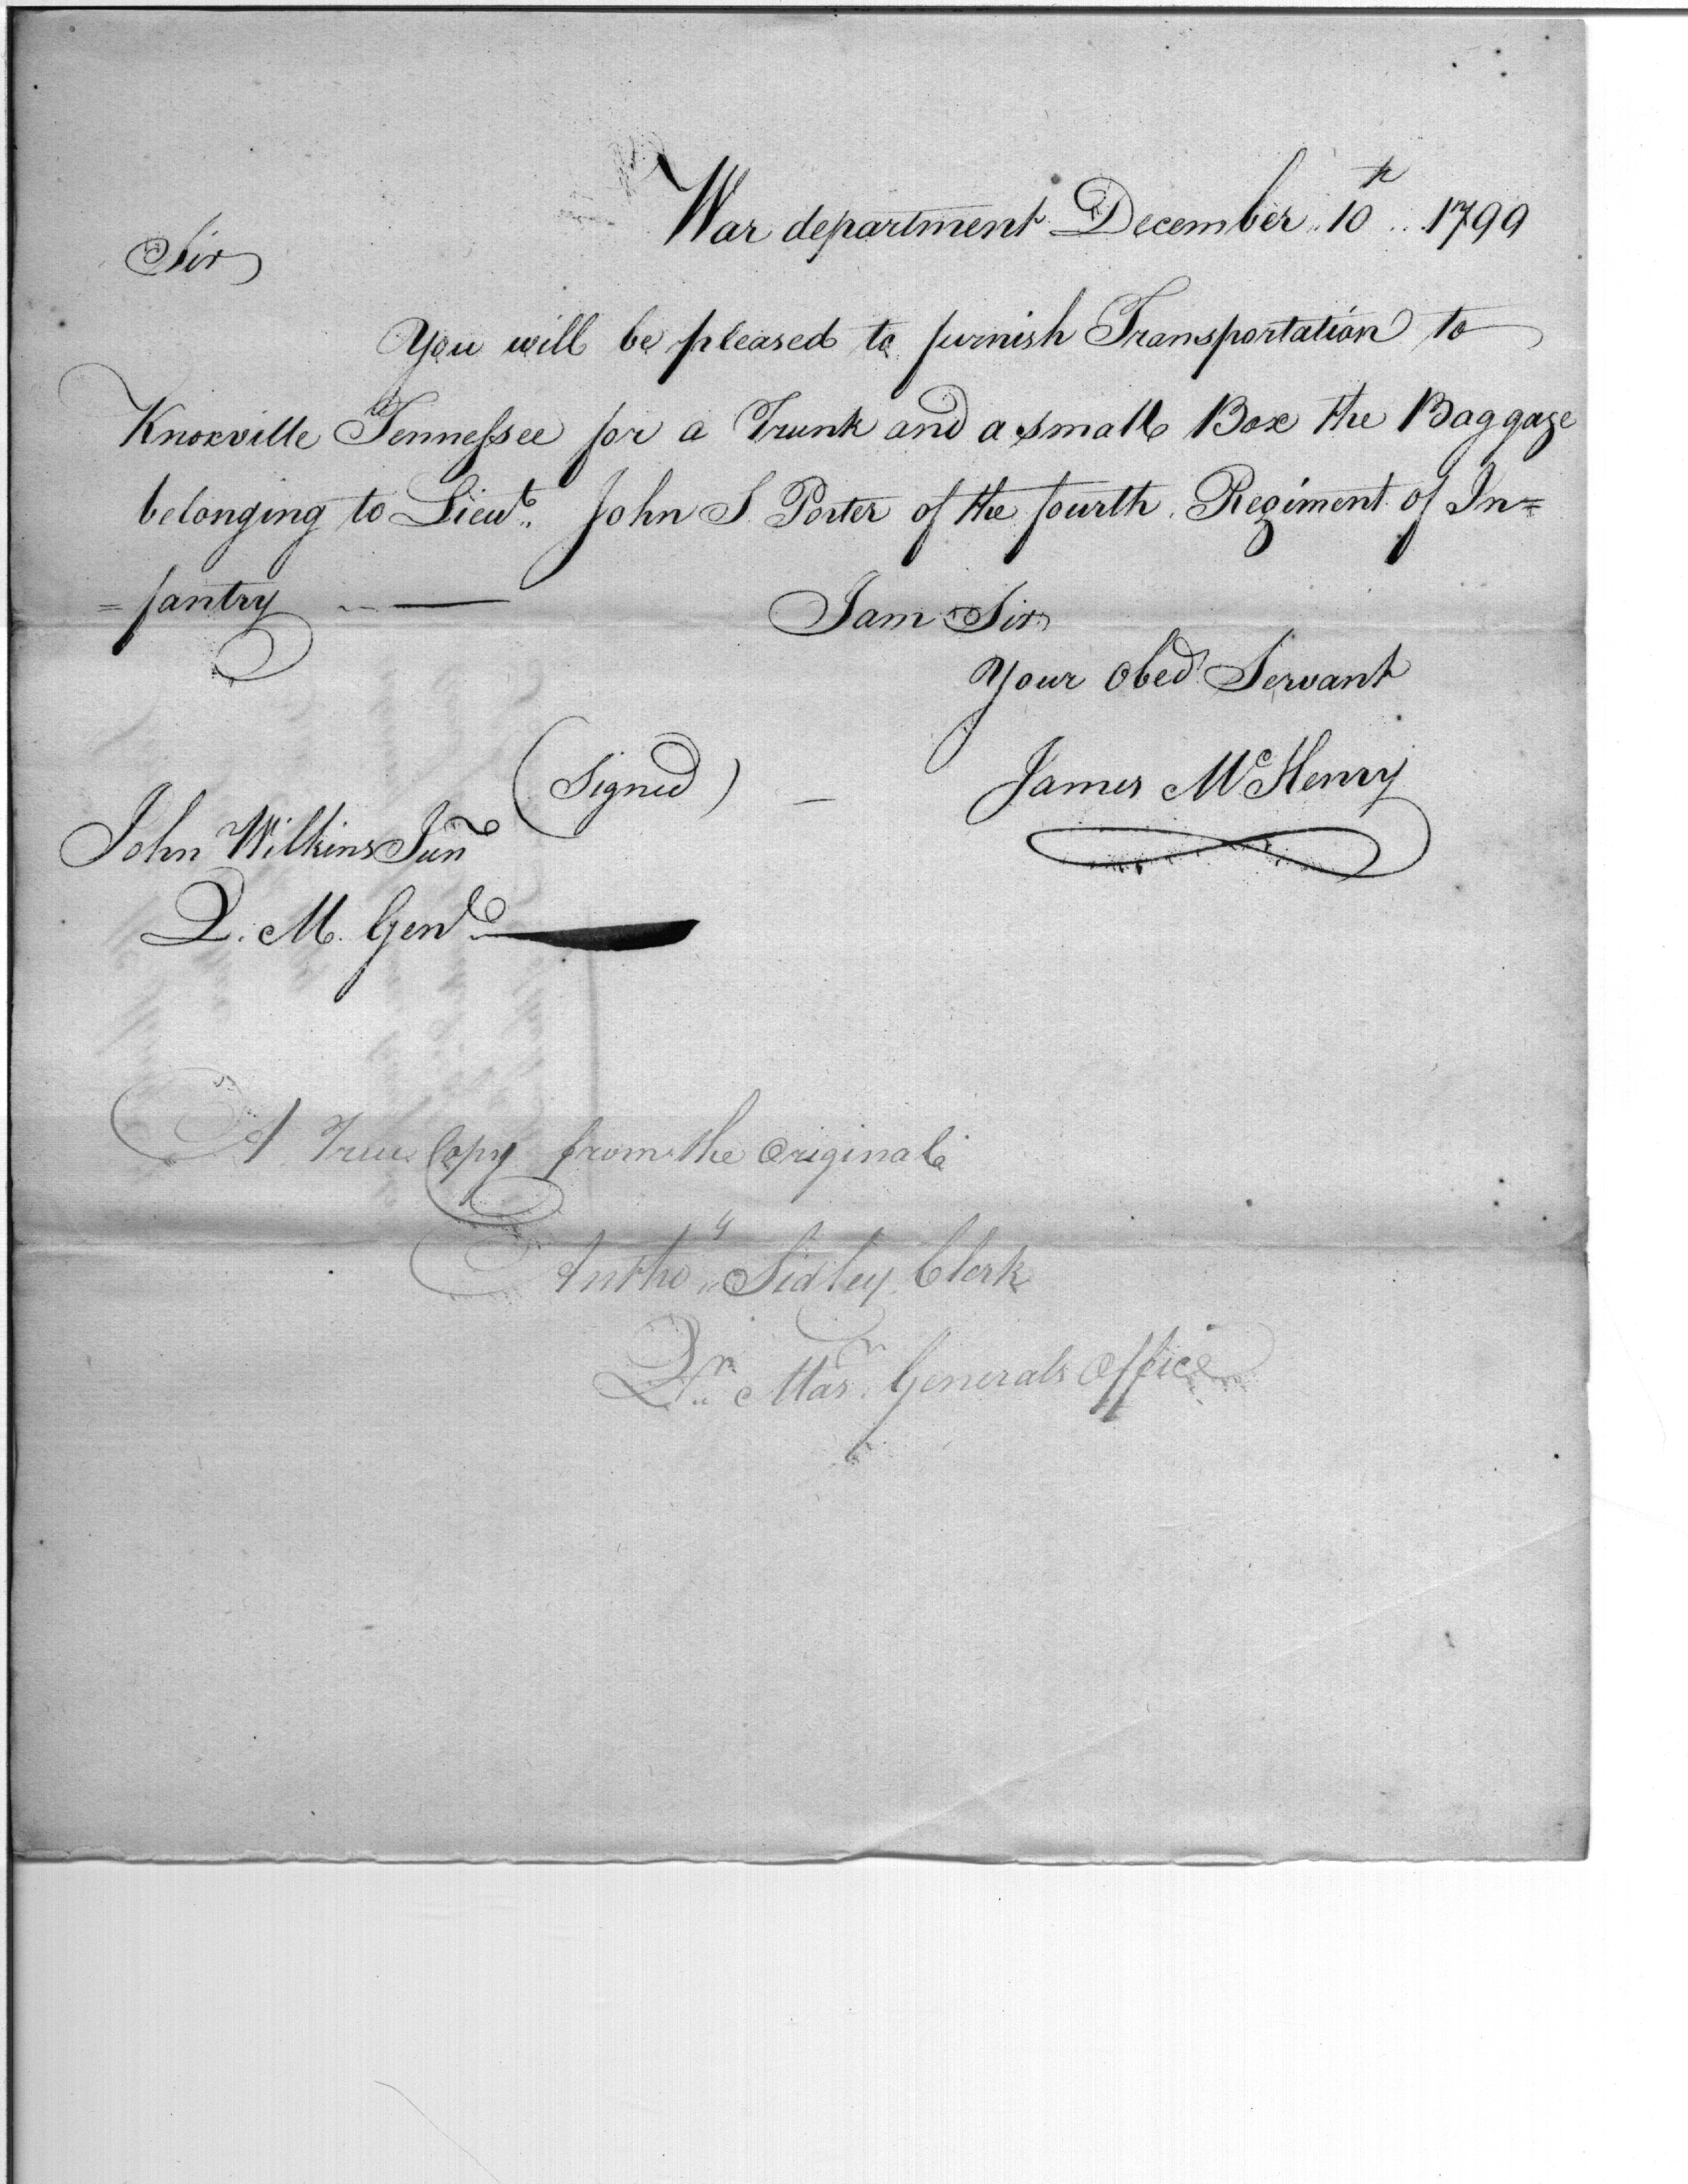 War department December 10th 1799
Sir
You will be pleased to furnish Transportation to
Knoxville Tennessee for a Trunk and a small Box the Baggage
belonging to Lieut. John S Porter of the fourth Regiment of In=
=fantry
I am Sir
Your Obed Servant
(Signed) — James McHenry
John Wilkins Junr
Q. M. Genl.
A True Copy from the Original
Anthoy Sidley Clerk
Qr. Masr. Generals Office